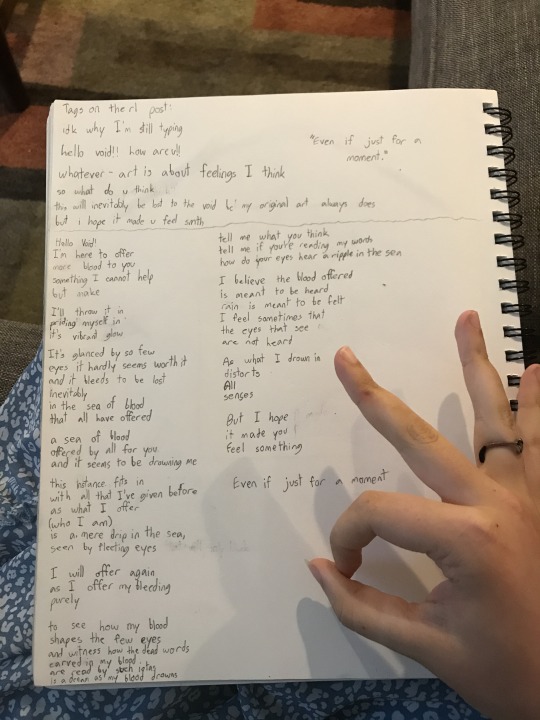 Tags on the rl post:
idk why I'm still typing
hello void!! how are u!!
"Even if just for a
moment."
whatever - art is about feelings I think
so what do u think
this will inevitably be lost to the void bc my original art always does
but i hope it made u feel smth
Hello Void!
I'm here to offer
more blood to you
something I cannot help
but make
I'll throw it in
priding myself in
it's vibrant glow
It's glanced by so few
eyes it hardly seems worth it
and it bleeds to be lost
Inevitably
in the sea of blood
that all have offered
a sea of blood
offered by all for you
and it seems to be drowning me
this instance fits in
with all that I've given before
as what I offer
(who I am)
is a mere drip in the sea,
seen by fleeting eyes
I will offer again
as I offer my bleeding
purely
to see how my blood
shapes the few eyes
and witness how the dead words
carved in my blood
are read by such
is a dream as my blood drowns
tell me what you think
tell me if you're reading my words
how do your eyes hear a ripple in the sea
I believe the blood offered
is meant to be heard
rain is meant to be felt
I feel sometimes that
the eyes that see
are not heard
As what I drown in
distorts
All
senses
But I hope
it made you
feel something
Even if just for a moment